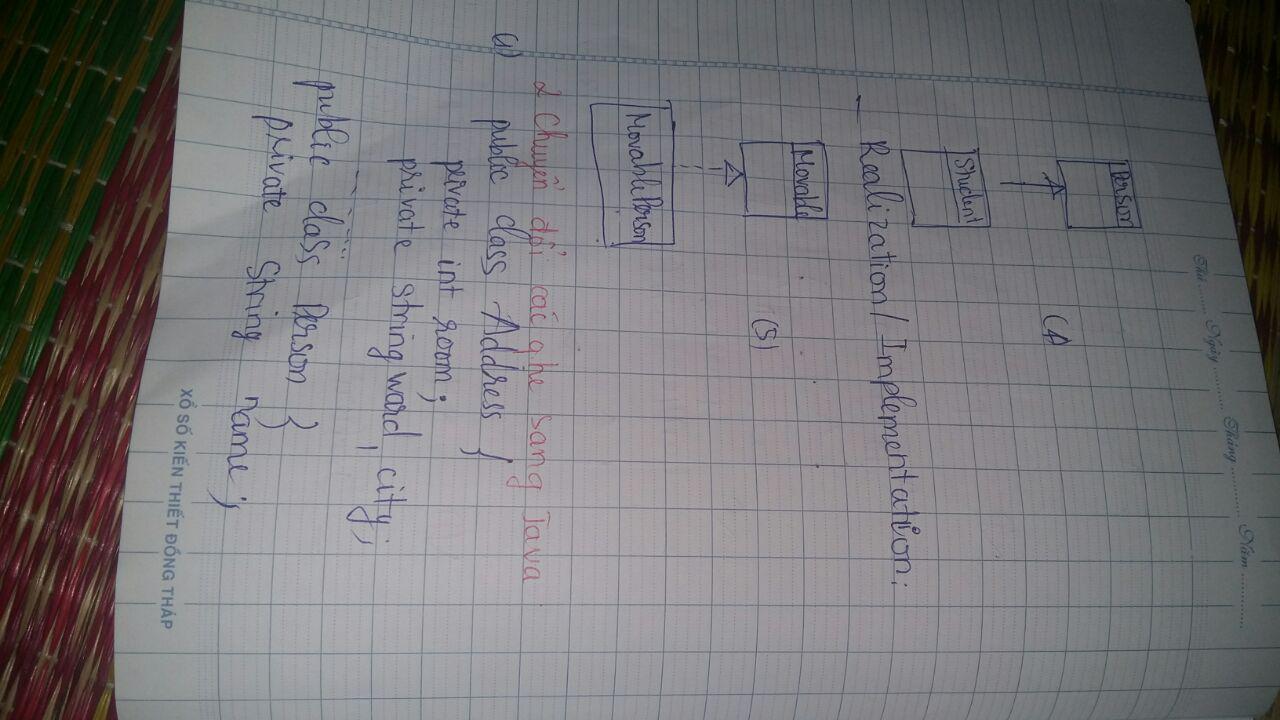 Thứ ........ Ngày .......... Tháng ........... Năm .............
Person
(4)
Student
- Realization / Implementation:
Movable
(5)
MovablePerson
2 Chuyển đổi các ghe sang Java
a) public class Address {
private int room;
private string ward, city;
.......
public class Person }
private String name;
XỔ SỐ KIẾN THIẾT ĐỒNG THÁP